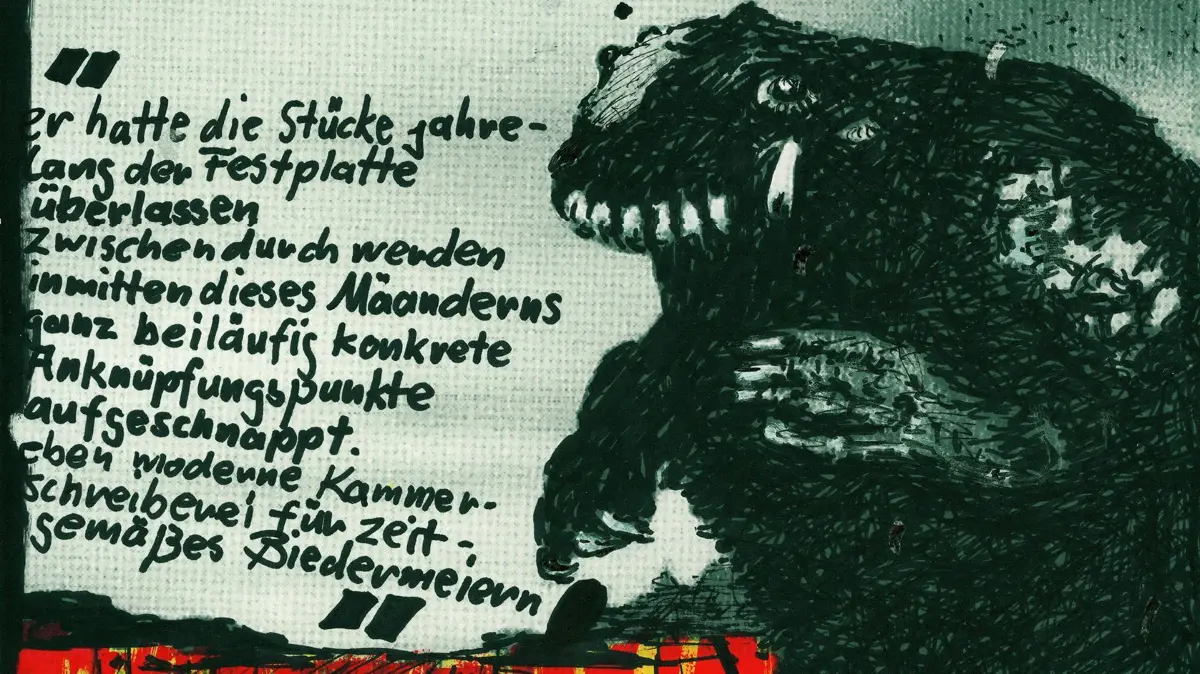 "
er hatte die Stücke jahre-
lang der Festplatte
überlassen
zwischendurch werden
inmitten dieses Mäanderns
ganz beiläufig konkrete
Anknüpfungspunkte
aufgeschnappt.
eben moderne Kammer-
schreiberei für zeit-
gemäßes Biedermeiern
"